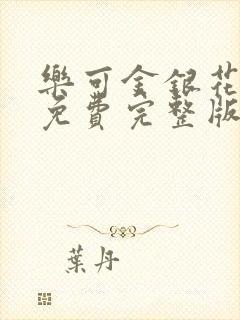 樂可金銀花
免費完整版
葉丹